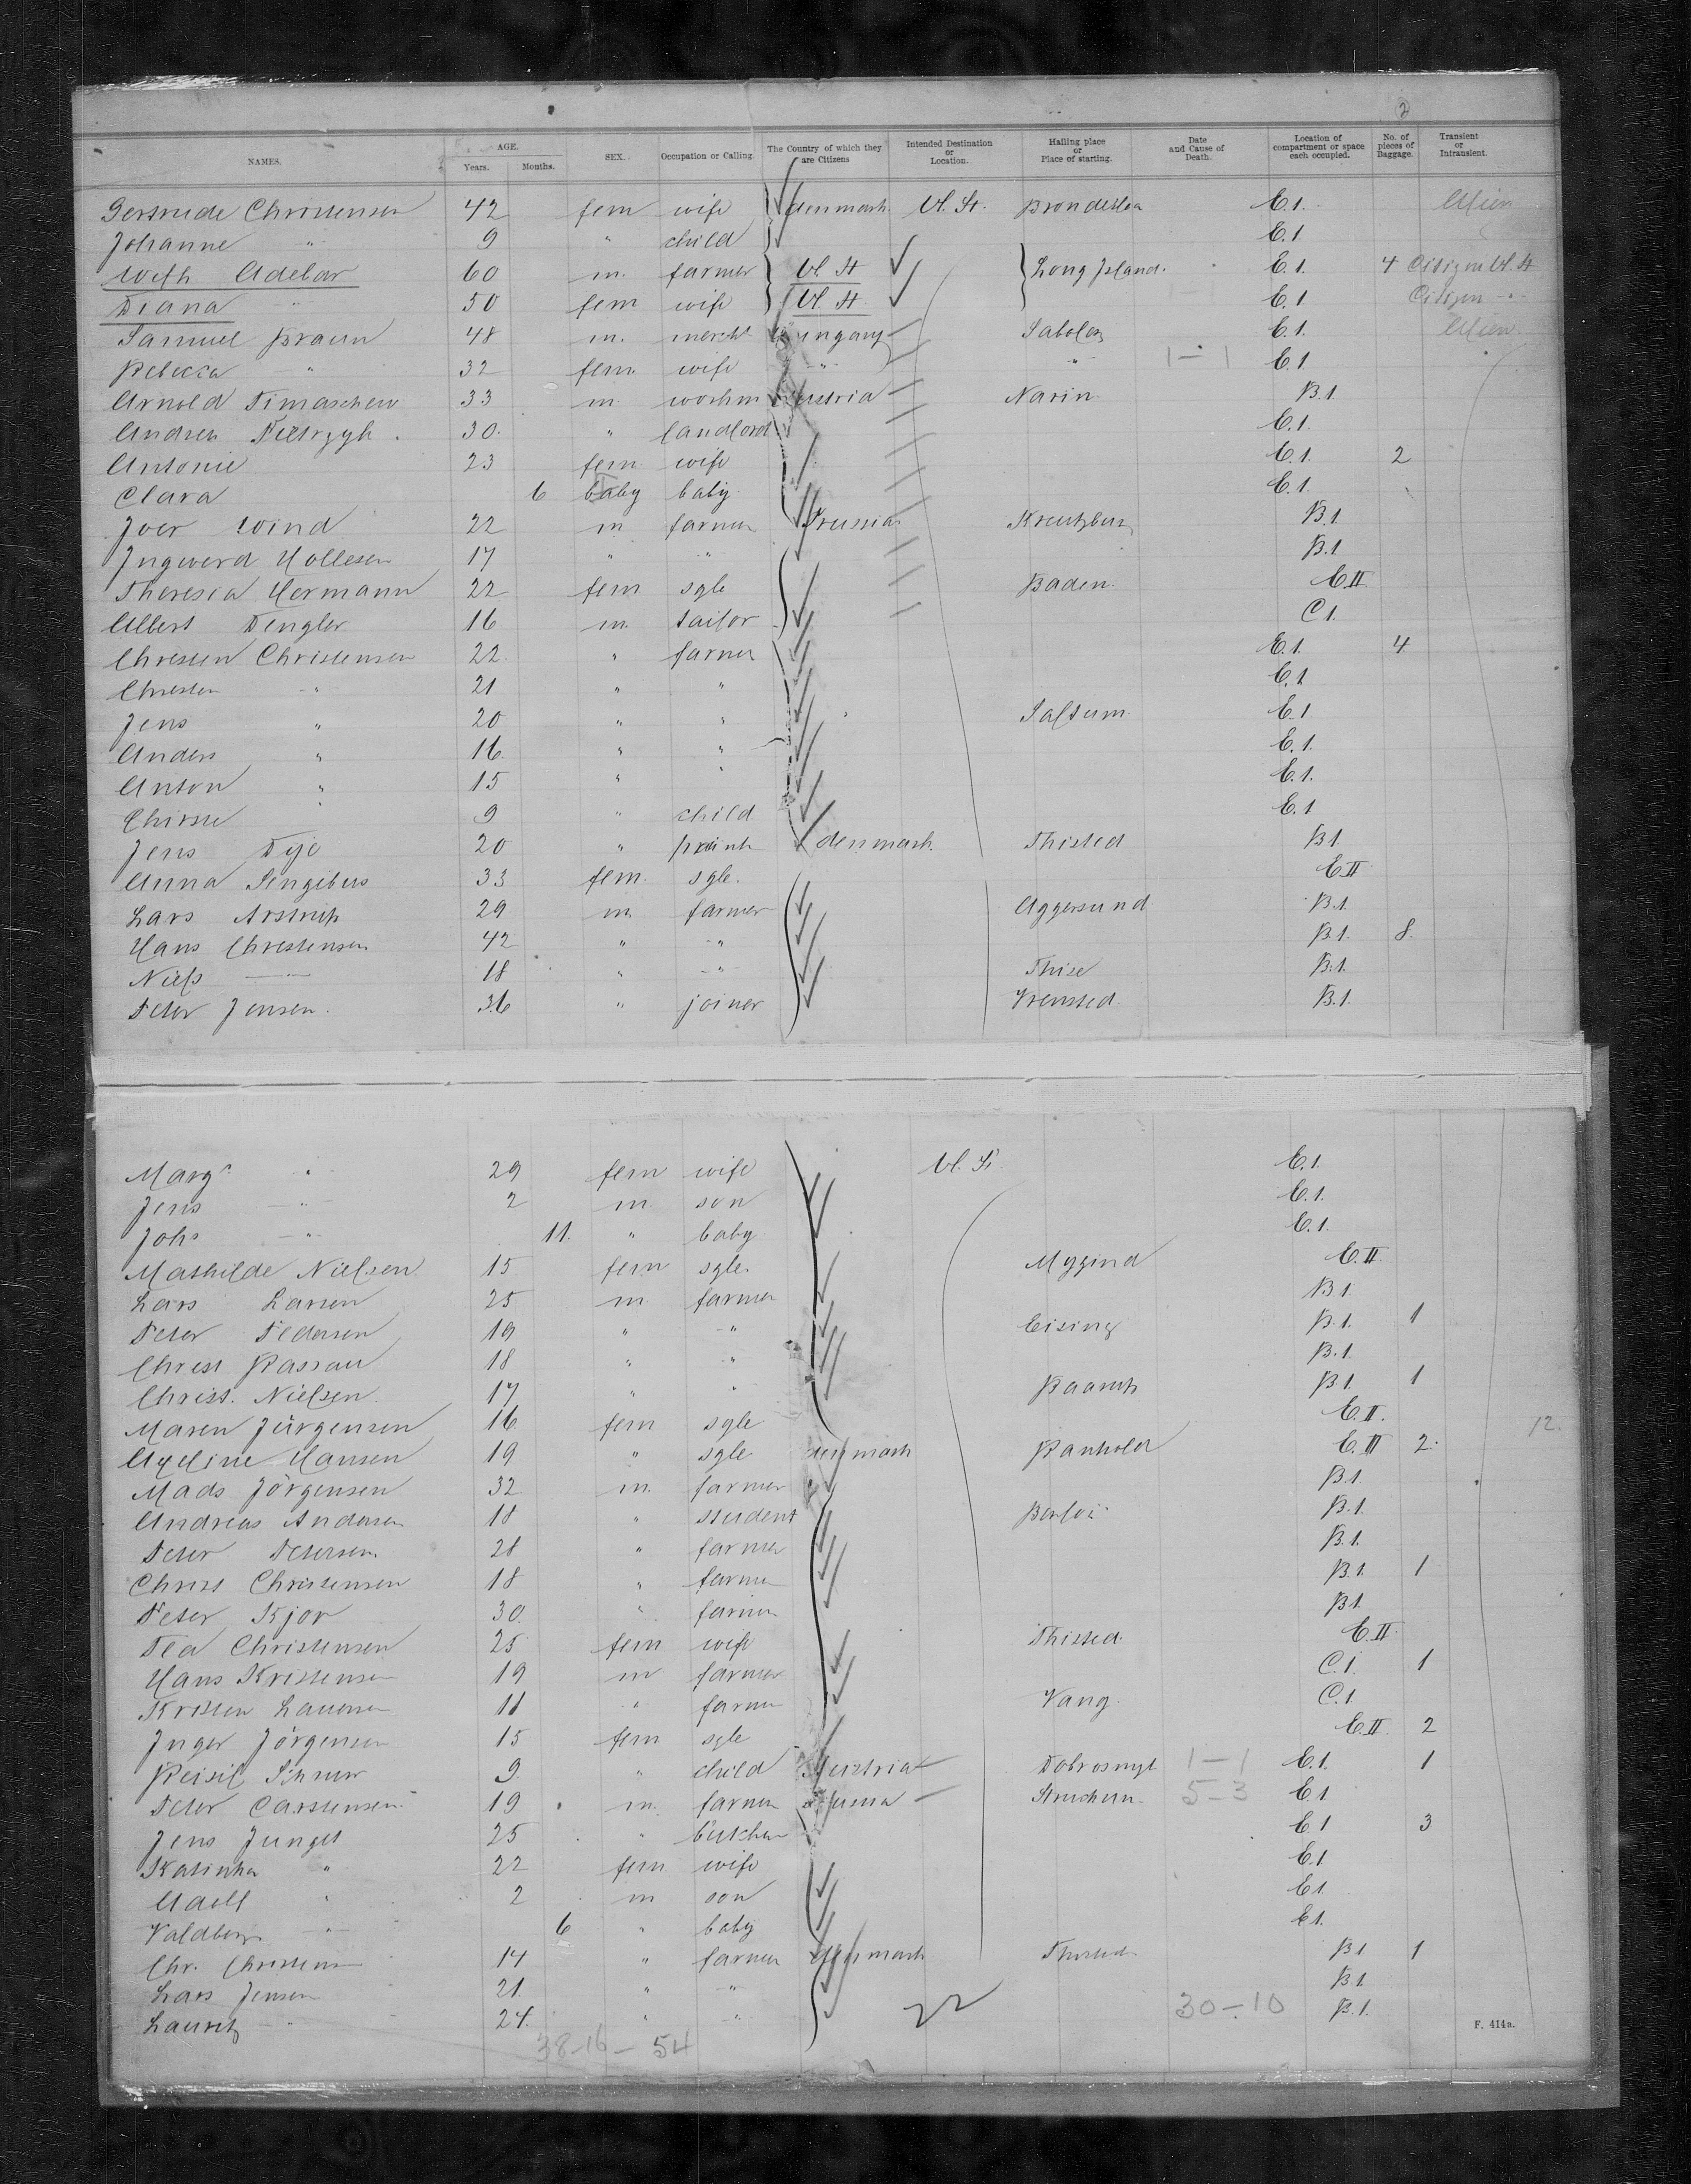 2
NAMES. AGE. Years. Months. SEX. Occupation or Calling. The Country of which they are Citizens Intended Destination or Location. Hailing place or Place of starting. Date and Cause of Death. Location of compartment or space each occupied. No. of pieces of Baggage. Transient or Intransient.
Gertrude Christensen 42 fem wife denmark U. St. E.1. Alien
Johanne " 9 " child E.1.
Adelar 60 m. farmer U. St Long Island. E.1. 4 Citizen U. St
Diana " 50 fem wife U. St. E.1. Citizen "
Samuel Braun 48 m. mercht Hungary E.1. Alien
Rebecca " 32 fem. wife " " 1-1 E.1
Arnold Timaschew 33 m. workm Austria Narin B.1
30. " landlord E.1.
Antonie 23 fem wife E.1. 2
Clara 6 baby baby E.1.
Joer Wind 22 m farmer Prussia Kreutzburg B.1
Ingwerd Hollesen 17 " " B.1
Theresia Hermann 22 fem sgle Baden. E.II
Albert Dengler 16 m. tailor C1.
Christen Christensen 22. " farmer E.1. 4
" 21 " " E.1
Jens " 20 " " Saltum. E.1
Anders " 16. " " E.1.
Anton " 15 " " E.1.
9 " child E.1
Jens 20 " denmark. Thisted B1
Anna 33 fem. sgle. E.II
Lars Arstrup 29 m. farmer Aggersund B.1.
Hans Christensen 42 " " B.1. 8.
Niels " 18 " " Thise B.1.
Peter Jensen. 36 " joiner Vrensted. B.1.
Marg " 29 fem wife U. St. E.1.
Jens " 2 m. son E.1.
Johs " 11. " baby E.1.
Mathilde Nielsen 15 fem sgle. Mygind E.II.
Lars Larsen 25 m farmer B.1
Peter Pedersen 19 " " Eising B.1. 1
Christ 18 " " B.1.
Christ. Nielsen 17 " " Raarup B1. 1
Maren Jürgensen 16. fem sgle E.II. 12.
Axeline Hansen 19 " sgle denmark Ranholdt E.II 2.
Mads Jörgensen 32 m. farmer B.1.
Andreas Andersen 18 " student B.1.
Peter Petersen 28 " farmer B.1.
Christ Christensen 18 " farmer B.1. 1
Peter Kjor 30. " farmer B1.
Tea Christensen 25 fem wife Thisted. E.II
Hans Kristensen 19 m farmer C.1. 1
Kristen " farmer Vang. C.1
Inger Jörgensen 15 fem sgle E.II. 2
9. " child Austria 1-1 E.1. 1
Peter Carstensen 19 m. farmer 5-3 E1
Jens 25 " butcher E.1 3
Katinka " 22 fem wife E1
Adolf " 2 m son E1
Valdborg " 6 " baby E1.
Chr. Christensen 14 " farmer denmark Thisted B1 1
Lars Jensen 21. " " B1.
Lauritz " 24. " " 22 30-10 B.1.
38-16-54
F. 414a.